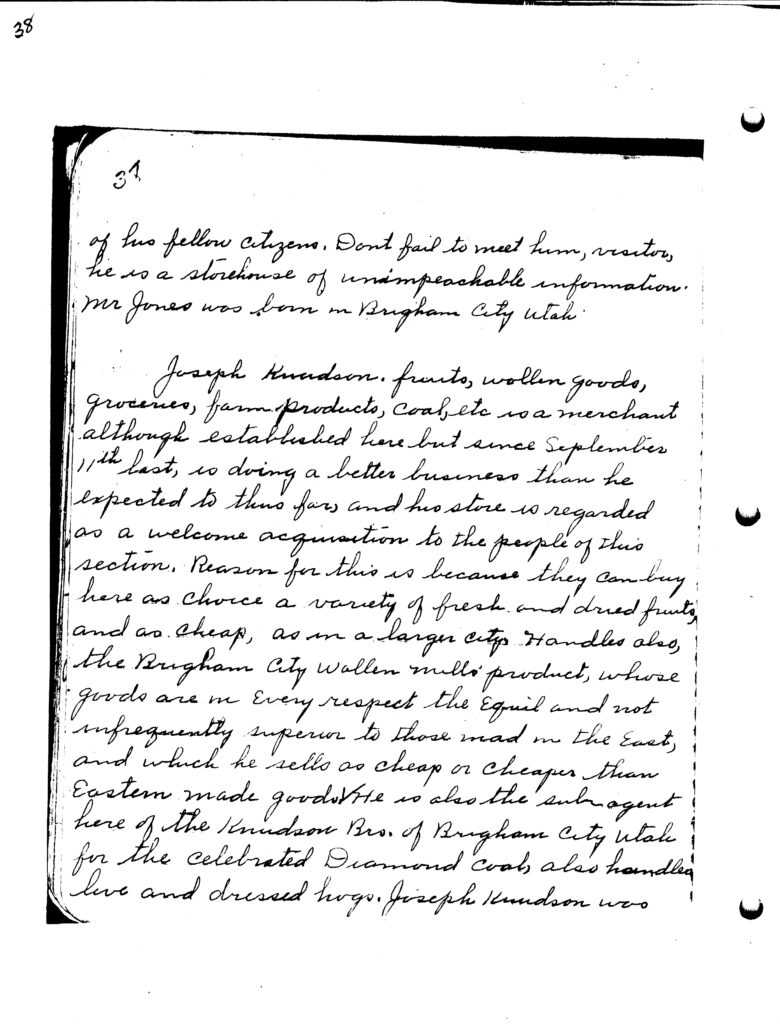 38
37
of his fellow citizens. Dont fail to meet him, visitor,
he is a storehouse of unimpeachable information.
Mr Jones was born in Brigham City Utah.
Joseph Knudson. fruits, wollen goods,
groceries, farm products, coal, etc is a merchant
although established here but since September
11th last, is doing a better business than he
expected to thus far, and his store is regarded
as a welcome acquisition to the people of this
section. Reason for this is because they can buy
here as choice a variety of fresh and dried fruits,
and as cheap, as in a larger city. Handles also,
the Brigham City Wollen mills product, whose
goods are in every respect the Equil and not
infrequently superior to those mad in the East,
and which he sells as cheap or cheaper than
Eastern made goods. He is also the sub-agent
here of the Knudson Bros. of Brigham City Utah
for the celebrated Diamond coal, also handles
live and dressed hogs. Joseph Knudson was